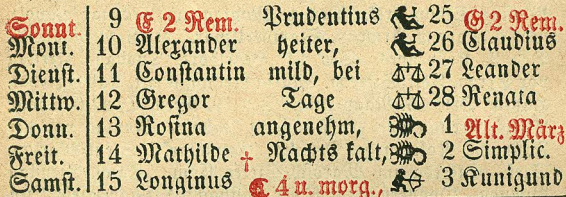 Sonnt. 9 E 2 Rem. Prudentius 25 G 2 Rem.
Mont. 10 Alexander heiter, 26 Claudius
Dienst. 11 Constantin mild, bei 27 Leander
Mittw. 12 Gregor Tage 28 Renata
Donn. 13 Rosina angenehm, 1 Alt. März
Freit. 14 Mathilde † Nachts kalt, 2 Simplic.
Samst. 15 Longinus ☾ 4 u. morg., 3 Kunigund